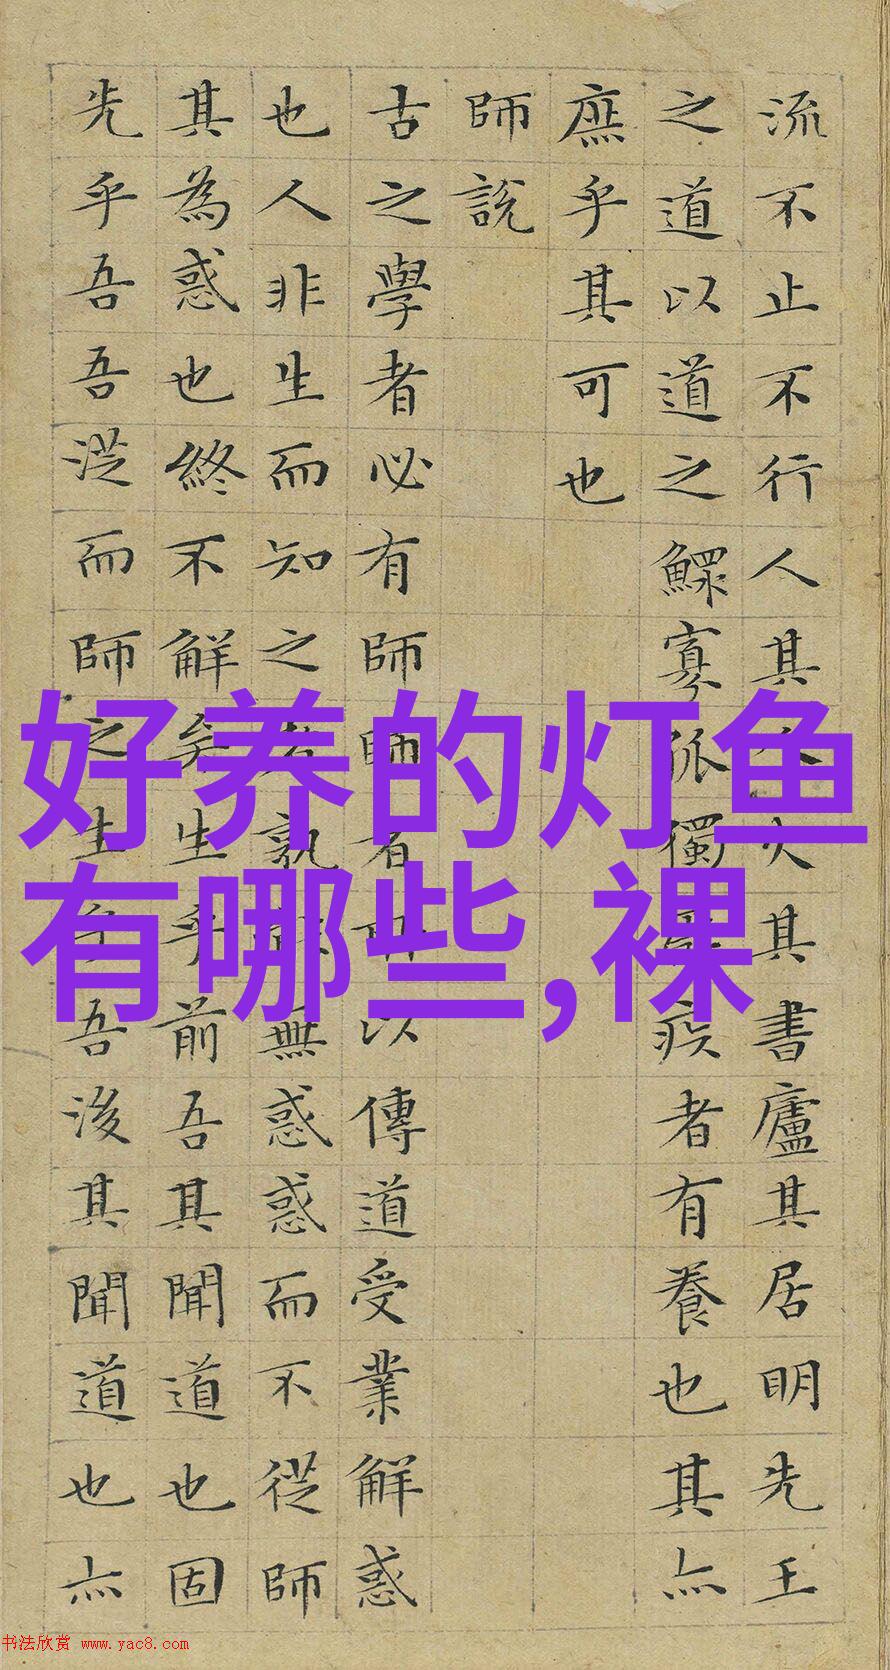 流不止不行人其人火其書廬其居明先王
之道以道之鰥寡孤獨疾者有養也其亦
庶乎其可也
師說
古之學者必有師師者所以傳道受業解惑
也人非生而知之者孰無惑惑而不從師
其為惑也終不解矣生乎前吾其聞道也固
先乎吾吾從而師之生乎吾後其聞道也亦
好养的灯鱼
有哪些,裸
书法欣赏 www.yac8.com